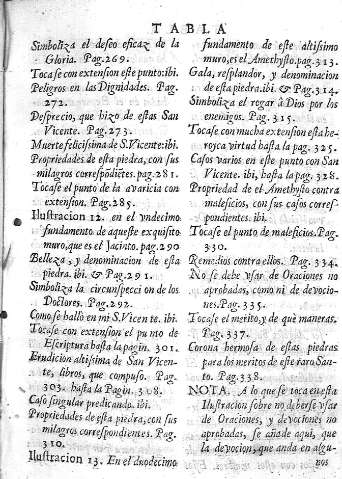 TABLA
Simboliza el deseo eficaz de la
Gloria. Pag. 269.
Tocase con extension este punto: ibi.
Peligros en las Dignidades. Pag.
272.
Desprecio, que hizo de estas San
Vicente. Pag. 273.
Muerte felicissima de S. Vicente: ibi.
Propriedades de esta piedra, con sus
milagros correspõdictes. pag. 281.
Tocase el punto de la avaricia con
extension. Pag. 285.
Ilustracion 12. en el vndecimo
fundamento de aqueste exquisito
muro, que es el Jacinto. pag. 290
Belleza, y denominacion de esta
piedra. ibi. & Pag. 291.
Simboliza la circunspeccion de los
Doctores. Pag. 292.
Como se hallò en mi S. Vicente. ibi.
Tocase con extension el punto de
Escriptura hasta la pagin. 301.
Erudicion altissima de San Vicen-
te, libros, que compuso. Pag.
303. hasta la Pagin. 308.
Caso singular predicando. ibi.
Propriedades de esta piedra, con sus
milagros correspondientes. Pag.
310.
Ilustracion 13. En el duodecimo
fundamento de este altissimo
muro, es el Amethysto. pag. 313.
Gala, resplandor, y denominacion
de esta piedra. ibi. & Pag. 314.
Simboliza el rogar à Dios por los
enemigos. Pag. 315.
Tocase con mucha extension esta he-
royca virtud hasta la pag. 325.
Casos varios en este punto con San
Vicente. ibi, hasta la pag. 328.
Propriedad de el Amethysto contra
maleficios, con sus casos corres-
pondientes. ibi.
Tocase el punto de maleficios. Pag.
330.
Remedios contra ellos. Pag. 334.
No se debe vsar de Oraciones no
aprobadas, como ni de devocio-
nes. Pag. 335.
Tocase el merito, y de què maneras.
Pag. 337.
Corona hermosa de estas piedras
para los meritos de este raro San-
to. Pag. 338.
NOTA. A lo que se toca en esta
Ilustracion sobre no deberse vsar
de Oraciones, y devociones no
aprobadas, se añade aqui, que
la devocion, que anda en algu-
nos